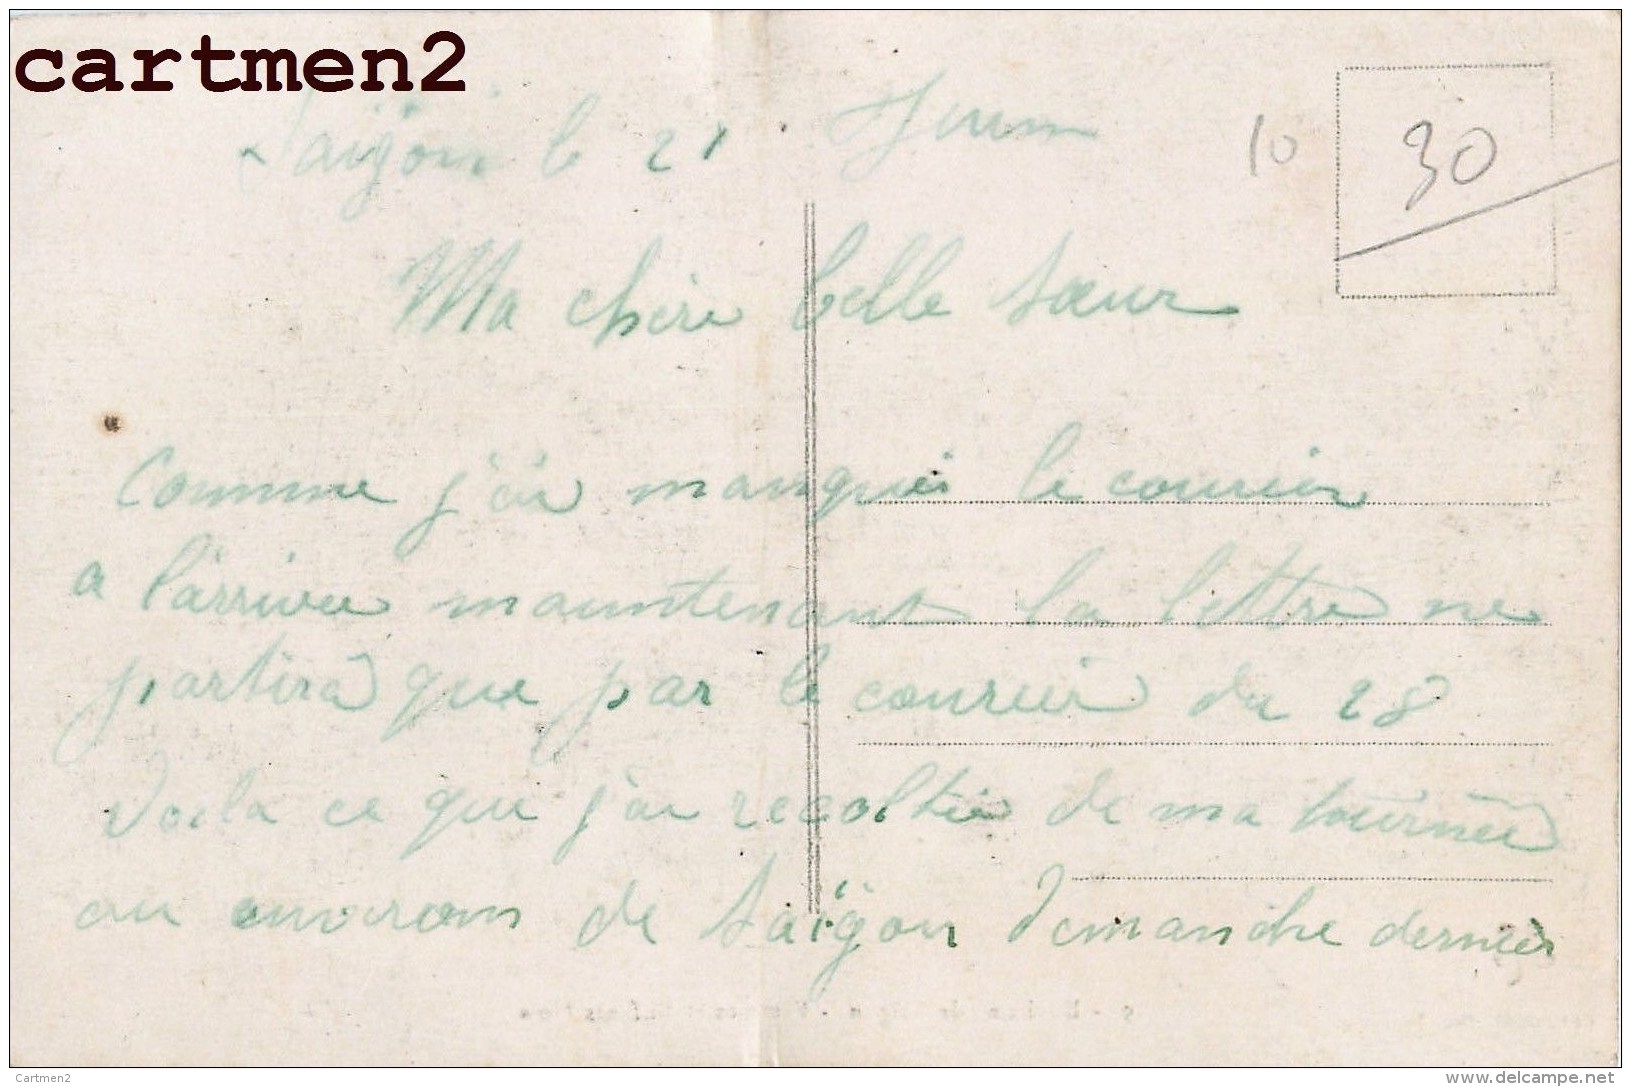 cartmen2
Saïgon le 21 Juin
10
30
Ma chère belle sœur
Comme j'ai manqués le courier
a l'arrivée maintenant la lettre ne
partira que par le courier du 28
Voila ce que j'ai recoltée de ma tournée
au environs de Saïgon Demanche dernier
Cartmen2
www.delcampe.net